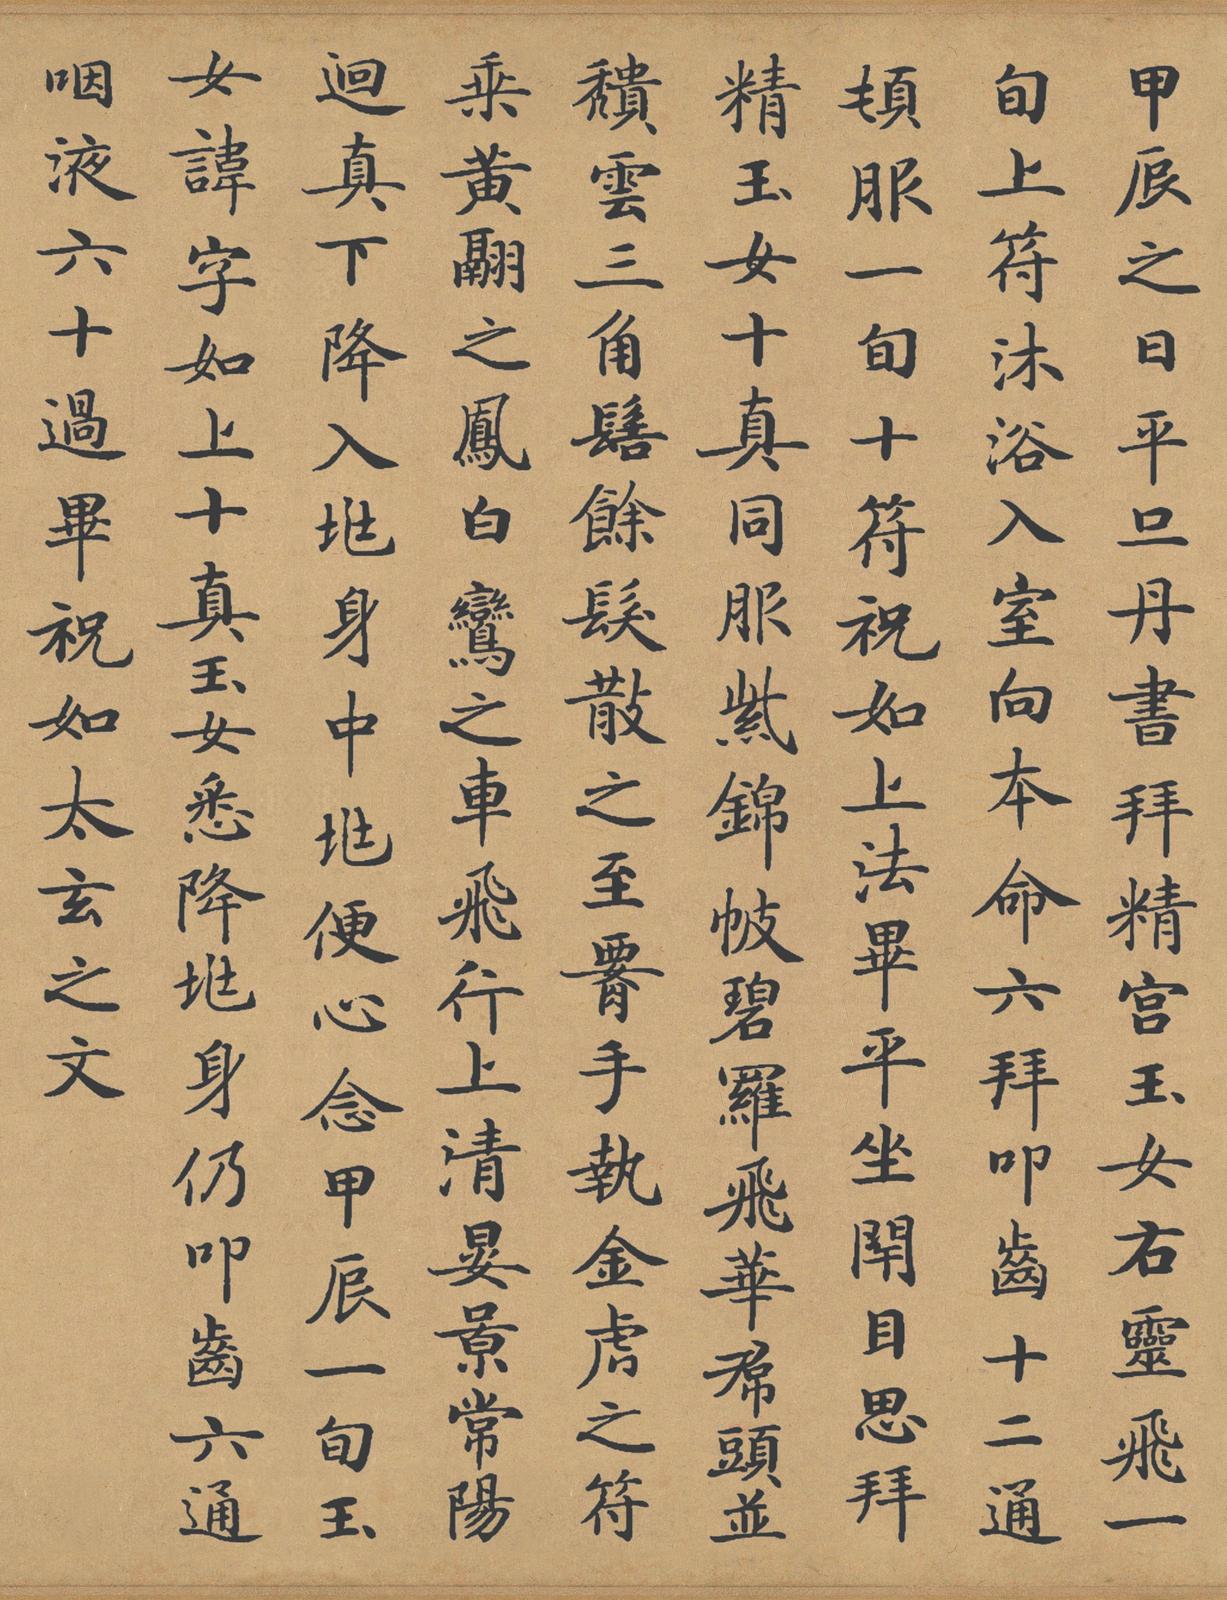 甲辰之日平旦丹書拜精宮玉女右靈飛一
旬上符沐浴入室向本命六拜叩齒十二通
頓服一旬十符祝如上法畢平坐閉目思拜
精玉女十真同服紫錦帔碧羅飛華帬頭並
穨雲三角髻餘髮散之至署手執金虎之符
乘黃翮之鳳白鸞之車飛行上清晏景常陽
迴真下降入地身中地便心念甲辰一旬玉
女諱字如上十真玉女悉降地身仍叩齒六通
咽液六十過畢祝如太玄之文